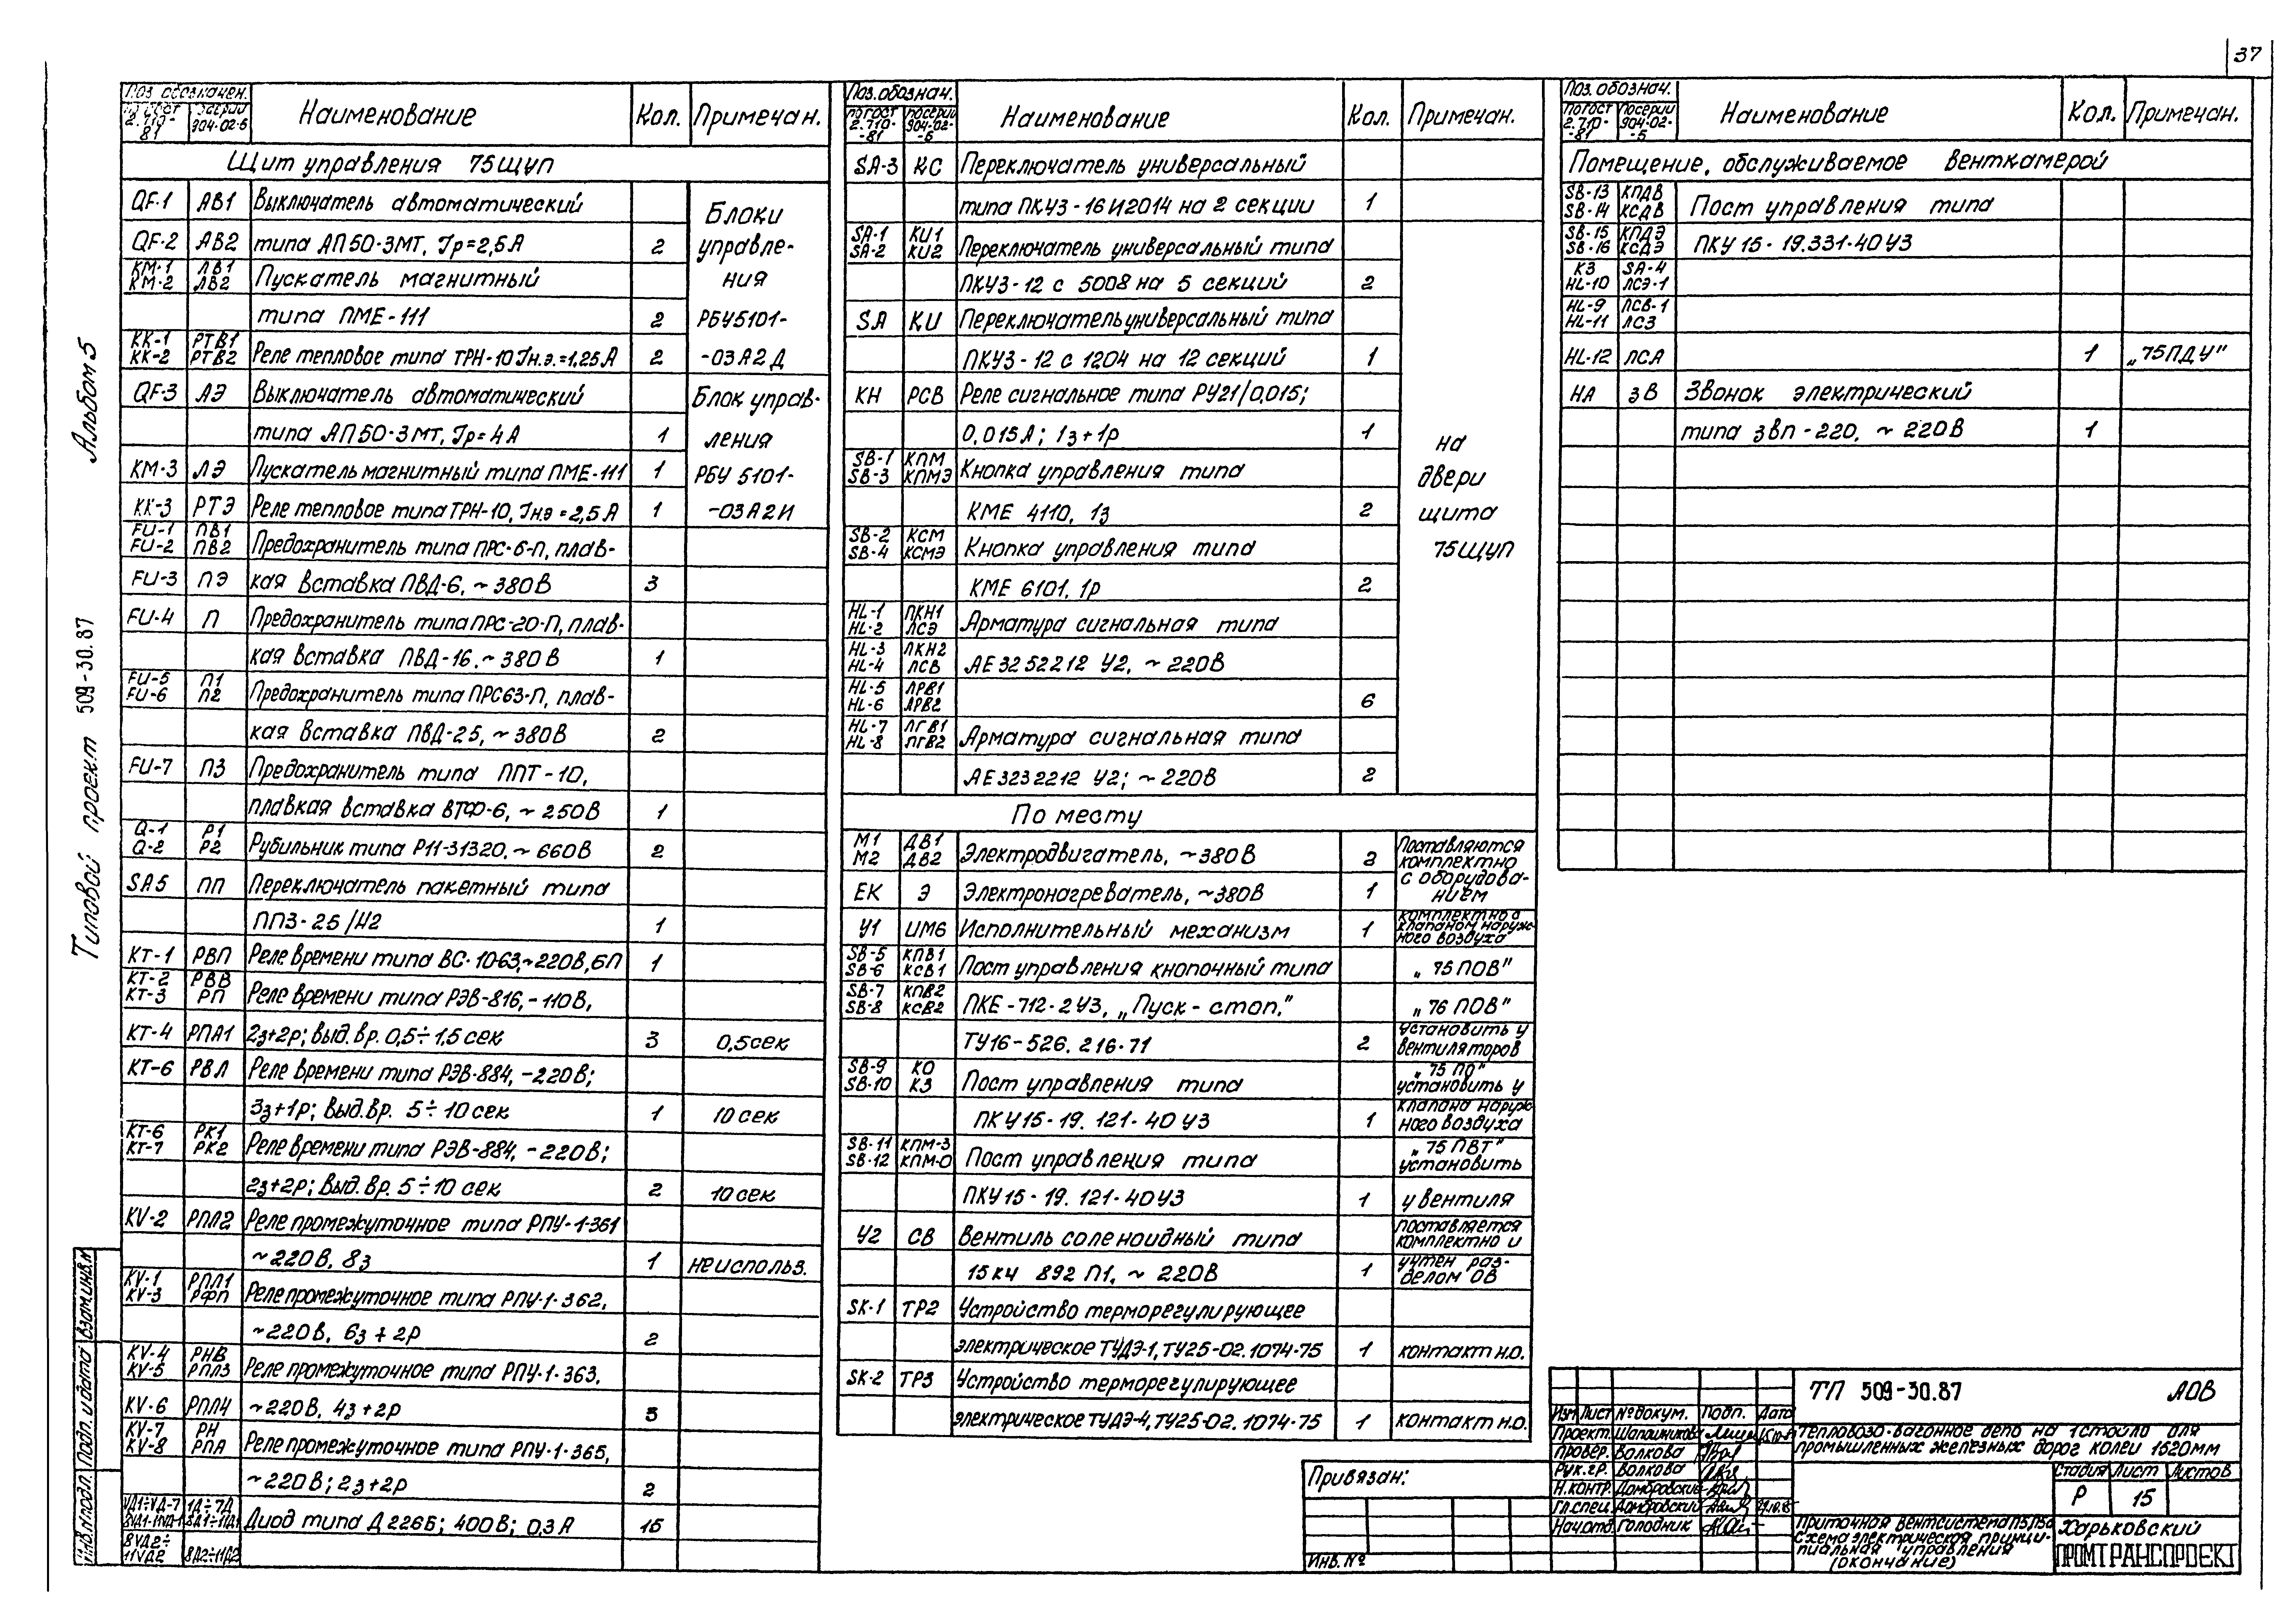 37
Альбом 5
Типовой проект 509-30.87
Поз. обозначен.
по гост 2.710-81
904-02-5
Наименование
Кол.
Примечан.
Щит управления 75ЩУП
QF-1 АВ1 Выключатель автоматический
QF-2 АВ2 типа АП50-3МТ, Iр=2,5А 2
KM-1 ЛВ1
KM-2 ЛВ2 Пускатель магнитный
типа ПМЕ-111 2
KK-1 РТВ1
KK-2 РТВ2 Реле тепловое типа ТРН-10 Iн.э.=1,25А 2
Блоки
управле-
ния
РБУ5101-
-03А2Д
QF-3 АЭ Выключатель автоматический
типа АП50-3МТ, Iр=4А 1
KM-3 ЛЭ Пускатель магнитный типа ПМЕ-111 1
KK-3 РТЭ Реле тепловое типа ТРН-10, Iн.э=2,5А 1
Блок управ-
ления
РБУ 5101-
-03А2И
FU-1 ПВ1
FU-2 ПВ2 Предохранитель типа ПРС-6-П, плав-
FU-3 ПЭ кая вставка ПВД-6, ~380В 3
FU-4 П Предохранитель типа ПРС-20-П, плав-
кая вставка ПВД-16. ~380В 1
FU-5 П1
FU-6 П2 Предохранитель типа ПРС63-П, плав-
кая вставка ПВД-25, ~380В 2
FU-7 П3 Предохранитель типа ППТ-10,
плавкая вставка ВТФ-6, ~250В 1
Q-1 Р1
Q-2 Р2 Рубильник типа Р11-31320, ~660В 2
SA5 ПП Переключатель пакетный типа
ПП3-25/Н2 1
KT-1 РВП Реле времени типа ВС-10-63,~220В,6П 1
KT-2 РВВ
KT-3 РП Реле времени типа РЭВ-816, -110В,
KT-4 РПА1 2з+2р; выд. вр. 0,5÷1,5 сек 3 0,5сек
KT-6 РВЛ Реле времени типа РЭВ-884, -220В;
3з+1р; выд.вр. 5÷10 сек 1 10 сек
KT-6 РК1
KT-7 РК2 Реле времени типа РЭВ-884, -220В;
2з+2р; выд. вр. 5÷10 сек 2 10 сек
KV-2 РПЛ2 Реле промежуточное типа РПУ-1-361
~220В, 8з 1 неиспольз.
KV-1 РПЛ1
KV-3 РФП Реле промежуточное типа РПУ-1-362,
~220В, 6з+2р 2
KV-4 РНВ
KV-5 РПЛ3 Реле промежуточное типа РПУ-1-363,
KV-6 РПЛ4 ~220В, 4з+2р 3
KV-7 РН
KV-8 РПА Реле промежуточное типа РПУ-1-365,
~220В; 2з+2р 2
Диод типа Д226Б; 400В; 0,3А 15
8VД2÷
11VД2 8Д2÷11Д2
Поз.обознач.
по гост 2.710-81
по серии 904-02-5
Наименование
Кол.
Примечан.
SA-3 КС Переключатель универсальный
типа ПКУ3-16И2014 на 2 секции 1
SA-1 КИ1
SA-2 КИ2 Переключатель универсальный типа
ПКУ3-12 с 5008 на 5 секций 2
SA КИ Переключатель универсальный типа
ПКУ3-12 с 1204 на 12 секций 1
KH РСВ Реле сигнальное типа РУ21/0,015;
0,015А; 1з+1р 1
SB-1 КПМ
SB-3 КПМЭ Кнопка управления типа
КМЕ 4110, 1з 2
SB-2 КСМ
SB-4 КСМЭ Кнопка управления типа
КМЕ 6101, 1р 2
HL-1 ЛКН1
HL-2 ЛСЭ Арматура сигнальная типа
HL-3 ЛКН2
HL-4 ЛСВ АЕ3252212 У2, ~220В
HL-5 ЛРВ1
HL-6 ЛРВ2 6
HL-7 ЛГВ1
HL-8 ЛГВ2 Арматура сигнальная типа
АЕ3232212 У2; ~220В 2
на
двери
щита
75ЩУП
По месту
M1 ДВ1
M2 ДВ2 Электродвигатель, ~380В 2
EK Э Электронагреватель, ~380В 1
Поставляются
комплектно
с оборудова-
нием
У1 ИМ6 Исполнительный механизм 1
комплектно с
клапаном наруж-
ного воздуха
SB-5 КПВ1
SB-6 КСВ1 Пост управления кнопочный типа „75ПОВ"
SB-7 КПВ2
SB-8 КСВ2 ПКЕ-712-2У3, „Пуск-стоп," „76 ПОВ"
ТУ16-526. 216-71 2
установить у
вентиляторов
SB-9 КО
SB-10 КЗ Пост управления типа
ПКУ15-19. 121-40У3 1
„75 ПО"
установить у
клапана наруж-
ного воздуха
SB-11 КПМ-З
SB-12 КПМ-О Пост управления типа
ПКУ15-19. 121-40У3 1
„75 ПВТ"
установить
у вентиля
У2 СВ Вентиль соленоидный типа
15кч 892 П1, ~220В 1
поставляется
комплектно и
учтен раз-
делом ОВ
SK-1 ТР2 Устройство терморегулирующее
электрическое ТУДЭ-1, ТУ25-02.1074-75 1 контакт н.о.
SK-2 ТР3 Устройство терморегулирующее
электрическое ТУДЭ-4, ТУ25-02.1074-75 1 контакт н.о.
Поз. обознач.
по гост 2.710-81
по серии 904-02-5
Наименование
Кол.
Примечан.
Помещение, обслуживаемое венткамерой
SB-13 КПДВ
SB-14 КСДВ Пост управления типа
SB-15 КПДЭ
SB-16 КСДЭ ПКУ 15-19.331-40У3
КЗ SA-4
HL-10 ЛСЭ-1
HL-9 ЛСВ-1
HL-11 ЛСЗ
HL-12 ЛСА 1 „75ПДУ"
HA ЗВ Звонок электрический
типа ЗВП-220, ~220В 1
Привязан:
Инв. №
Изм Лист № докум. Подп. Дата
Проект. Шапошникова
Провер. Волкова
Рук.гр. Волкова
Н.контр. Домбровский
Гл.спец. Домбровский
Нач.отд. Голодник
ТП 509-30.87 АОВ
Тепловозо-вагонное депо на 1 стойло для
промышленных железных дорог колеи 1520мм
Стадия Лист Листов
Р 15
Приточная вентсистема П5,П5а
Схема электрическая принци-
пиальная управления
(окончание)
Харьковский
ПРОМТРАНСПРОЕКТ
Инв.№подл. Подп. и дата Взам.инв.№